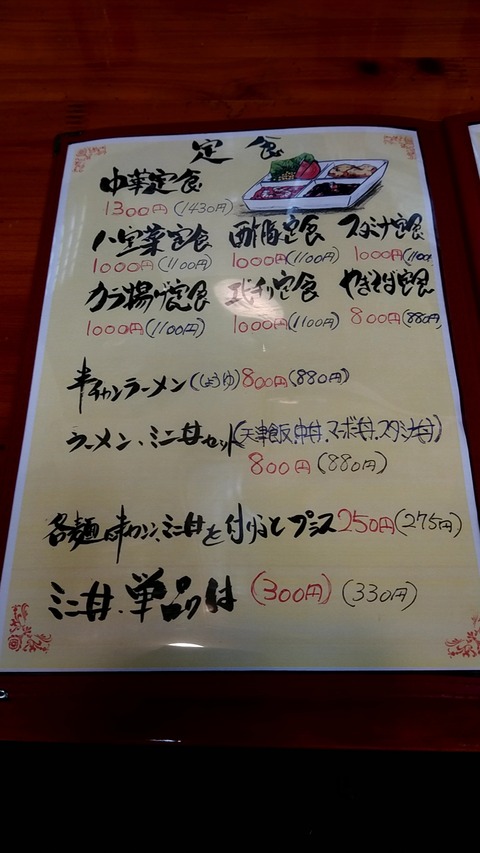 定食
中華定食
1300円(1430円)
八宝菜定食 酢豚定食 スタミナ定食
1000円(1100円) 1000円(1100円) 1000円(1100
カラ揚げ定食 エビチリ定食 やきそば定食
1000円(1100円) 1000円(1100円) 800円(880円)
半チャンラーメン(しょうゆ)800円(880円)
ラーメン、ミニ丼セット(天津飯、中丼、マーボ丼、スタミナ丼)
800円(880円)
各麺に半チャン、ミニ丼を付けるとプラス250円(275円)
ミニ丼、単品は(300円)(330円)